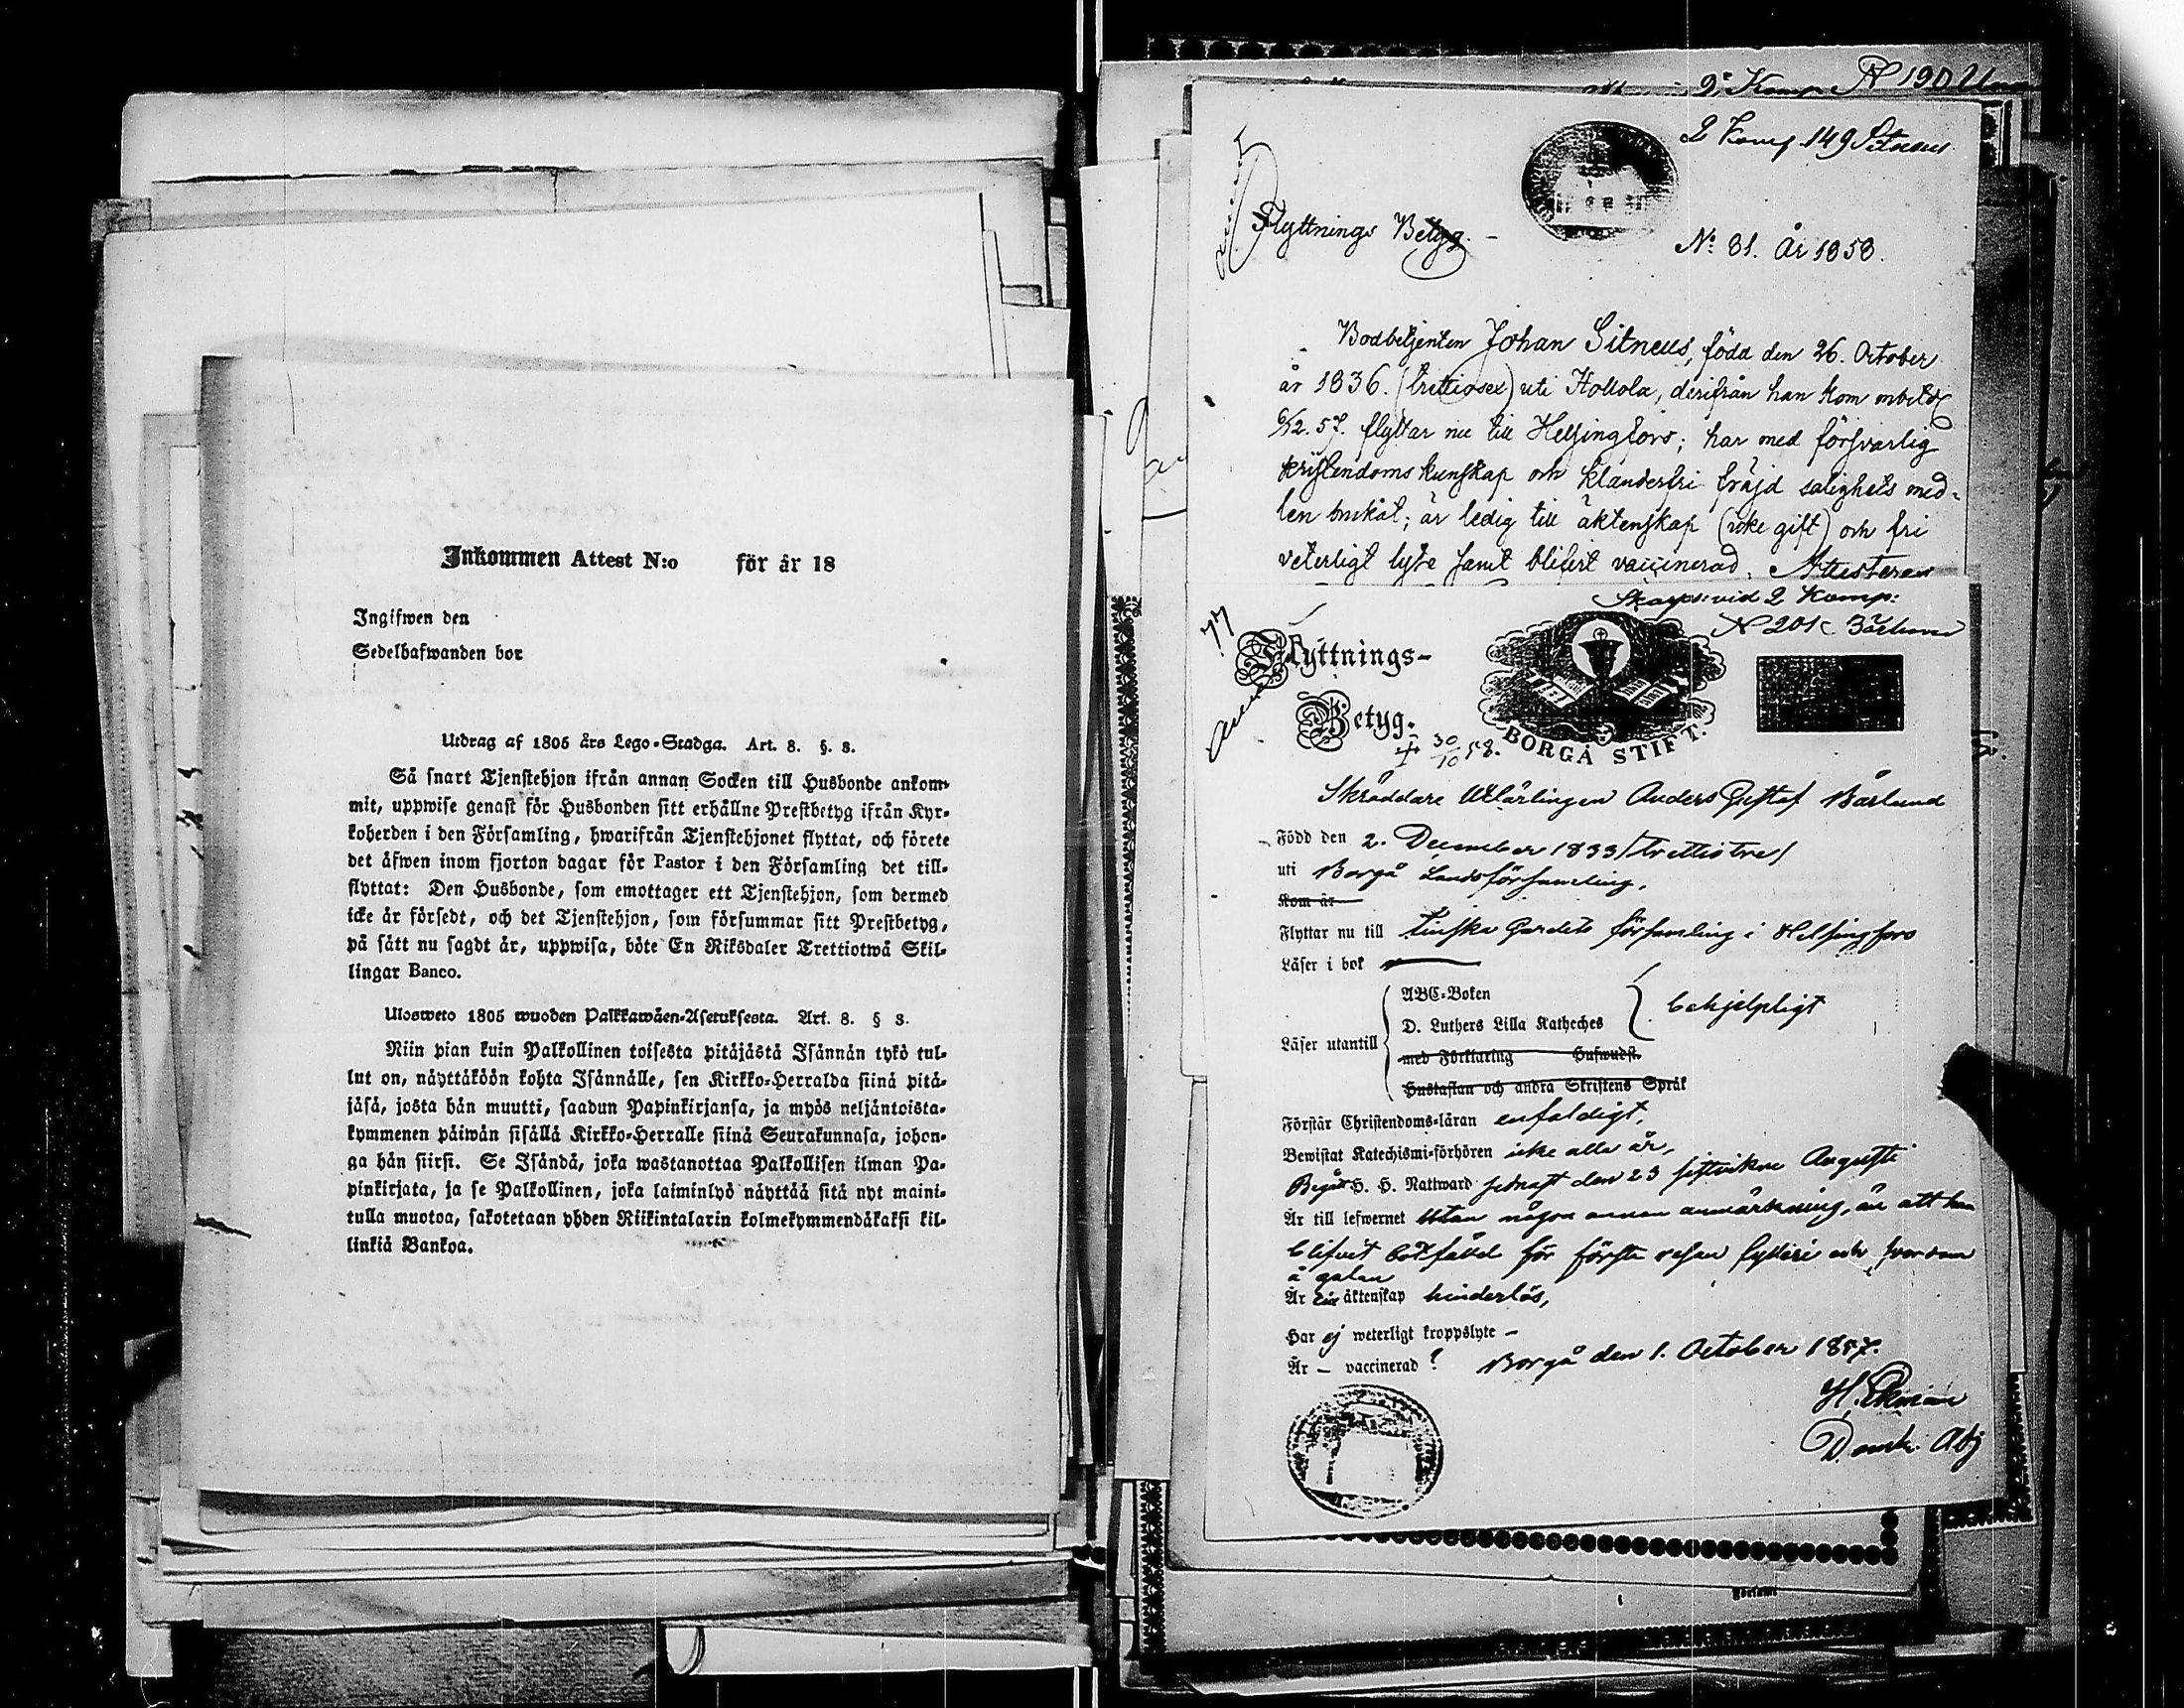 Inkommen Attest N:o för år 18
Ingifwen den
Sedelhafwanden bor
Utdrag af 1805 års Lego-Stadga. Art. 8. §. 8.
Så snart Tjenstehjon ifrån annan Socken till Husbonde ankom-
mit, uppwise genast för Husbonden sitt erhållne Prestbetyg ifrån Kyr-
koherden i den Församling, hwarifrån Tjenstehjonet flyttat, och förete
det äfwen inom fjorton dagar för Pastor i den Församling det till-
flyttat: Den Husbonde, som emottager ett Tjenstehjon, som dermed
icke är försedt, och det Tjenstehjon, som försummar sitt Prestbetyg,
på sätt nu sagdt är, uppwisa, böte En Riksdaler Trettiotwå Skil-
lingar Banco.
Ulosweto 1805 wuoden Palkkawäen-Asetuksesta. Art. 8. § 8.
Niin pian kuin Palkollinen toisesta pitäjästä Isännän tykö tul-
lut on, näyttäköön kohta Isännälle, sen Kirkko-Herralda siinä pitä-
jäsä, josta hän muutti, saadun Papinkirjansa, ja myös neljäntoista-
kymmenen päiwän sisällä Kirkko-Herralle siinä Seurakunnasa, johon-
ga hän siirsi. Se Isändä, joka wastanottaa Palkollisen ilman Pa-
pinkirjata, ja se Palkollinen, joka laiminlyö näyttää sitä nyt maini-
tulla muotoa, sakotetaan yhden Riikintalarin kolmekymmendäkaksi kil-
linkiä Bankoa.
2 Komp 149 Sitneus
Flyttnings Betyg. -
No: 81. År 1858.
Bodbetjenten Johan Sitneus, född den 26. October
år 1836. (trettiosex) uti Hollola, derifrån han kom
6/12. 57. flyttar nu till Helsingfors; har med försvarlig
kristendoms kunskap och klanderfri fräjd salighets med-
len brukat; är ledig till äktenskap (icke gift) och fri
veterligt lyte samt blifvit vaccinerad. Attesteras
Skarps: vid 2 Komp:
N 201 Bärlund
77
Flyttnings-
Betyg.
BORGÅ STIFT.
+ 30/10 58.
Skräddare Utlärlingen Anders Gustaf Bärlund
Född den 2. December 1833 /trettiotre/
uti Borgå Landsförsamling.
Kom år
Flyttar nu till Finska Gardets församling i Helsingfors
Läser i bok
ABC-Boken
D. Luthers Lilla Katheches
behjelpligt
Läser utantill
med Förklaring Hufwudst.
Hustaflan och andra Skriftens Språk
Förstår Christendoms-läran enfaldigt,
Bewistat Katechismi-förhören icke alla år,
Begått H. H. Nattward sednast den 23 sistvikne Augusti
Är till lefwernet utan någon annan anmärkning, än att han
blifvit botfälld för första resan fylleri och svordom
å gatan
Är till äktenskap hinderlös,
Har ej weterligt kroppslyte -
Är - vaccinerad? Borgå den 1. October 1857.
H. Ekman
Domk. Adj